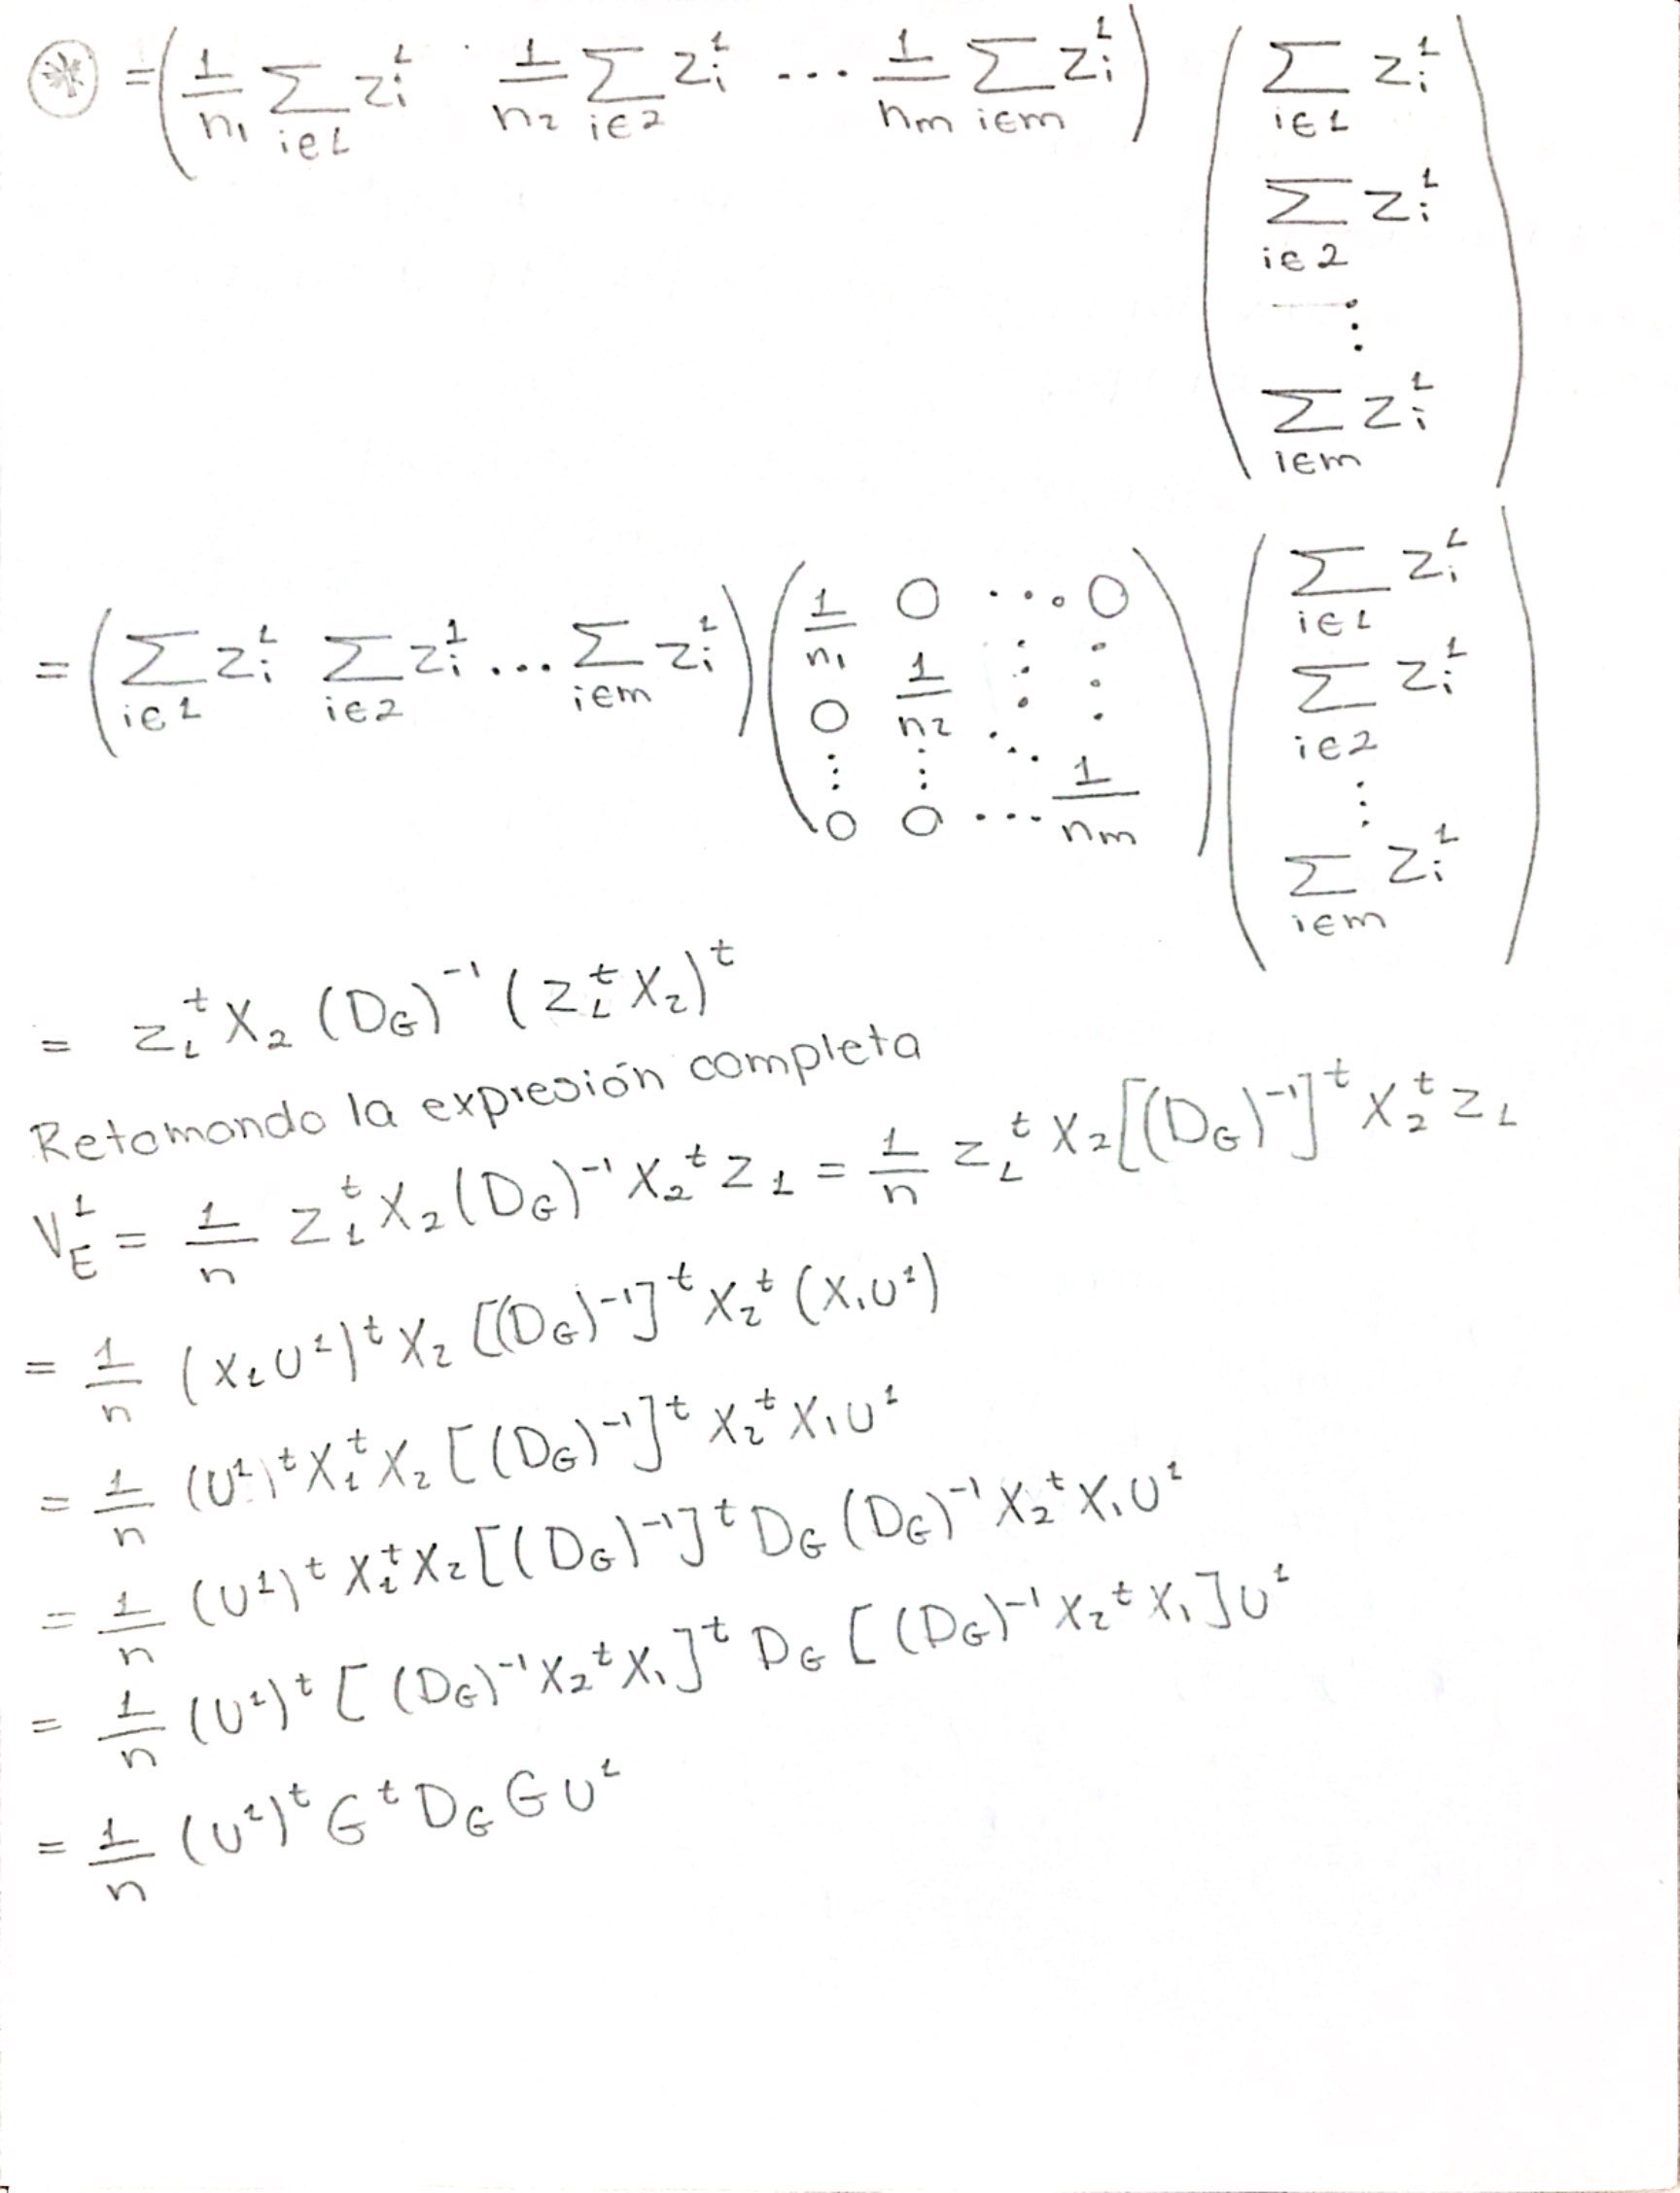 ⊛ = ( 1/n₁ ∑_{i∈1} z_i^1   1/n₂ ∑_{i∈2} z_i^1 ... 1/n_m ∑_{i∈m} z_i^1 ) ( ∑_{i∈1} z_i^1   ∑_{i∈2} z_i^1   ⋮   ∑_{i∈m} z_i^1 )
= ( ∑_{i∈1} z_i^1   ∑_{i∈2} z_i^1 ... ∑_{i∈m} z_i^1 ) ( 1/n₁ 0 ⋯ 0   0 1/n₂ ⋮ ⋮   ⋮ ⋮ ⋱   0 0 ⋯ 1/n_m ) ( ∑_{i∈1} z_i^1   ∑_{i∈2} z_i^1   ⋮   ∑_{i∈m} z_i^1 )
= z_1^t X_2 (D_G)^{-1} (z_1^t X_2)^t
Retomando la expresión completa
V_E^1 = 1/n z_1^t X_2 (D_G)^{-1} X_2^t z_1 = 1/n z_1^t X_2 [(D_G)^{-1}]^t X_2^t z_1
= 1/n (X_1 U^1)^t X_2 [(D_G)^{-1}]^t X_2^t (X_1 U^1)
= 1/n (U^1)^t X_1^t X_2 [(D_G)^{-1}]^t X_2^t X_1 U^1
= 1/n (U^1)^t X_1^t X_2 [(D_G)^{-1}]^t D_G (D_G)^{-1} X_2^t X_1 U^1
= 1/n (U^1)^t [(D_G)^{-1} X_2^t X_1]^t D_G [(D_G)^{-1} X_2^t X_1] U^1
= 1/n (U^1)^t G^t D_G G U^1